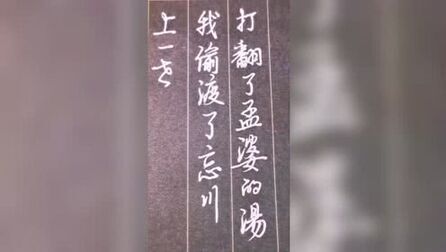 上一世
我偷渡了忘川
打翻了孟婆的湯